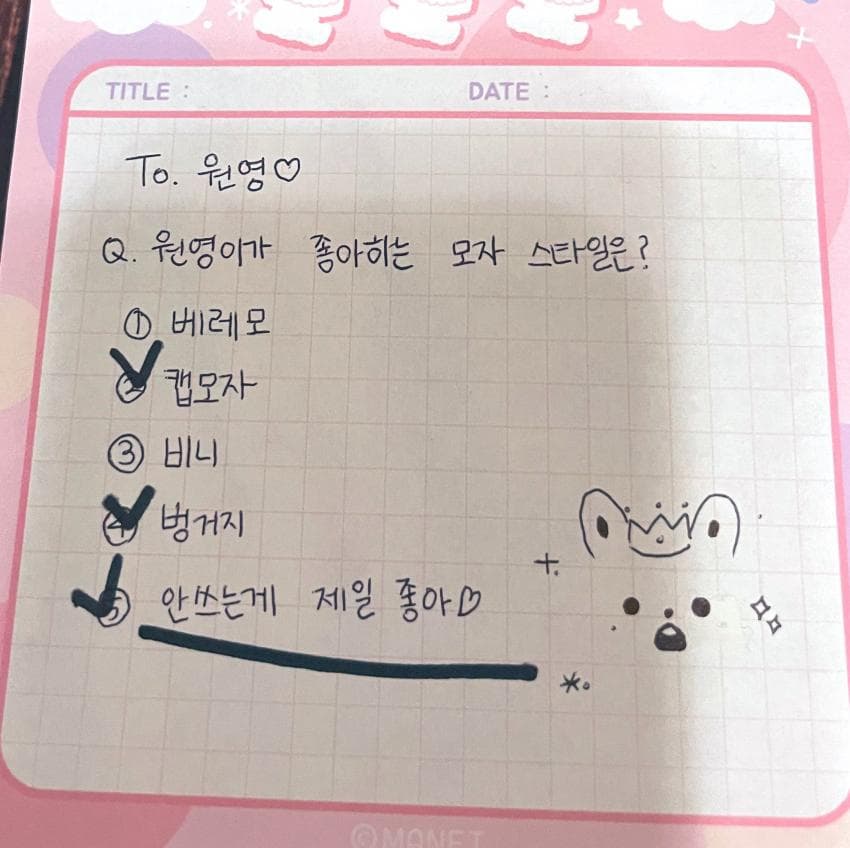 TITLE : DATE :
To. 원영♡
Q. 원영이가 좋아히는 모자 스타일은?
① 베레모
② 캡모자
③ 비니
④ 벙거지
⑤ 안쓰는게 제일 좋아♡
©MANET